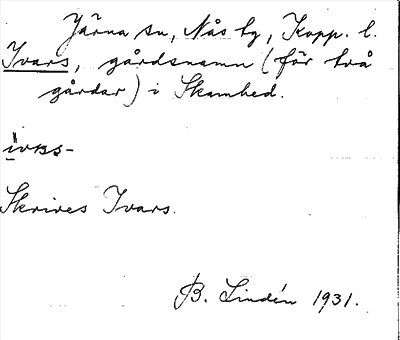 Järna sn, Nås by, Kopp. l.
Ivars, gårdsnamn (för två
gårdar) i Skamhed.
Skrives Ivars.
B. Lindén 1931.